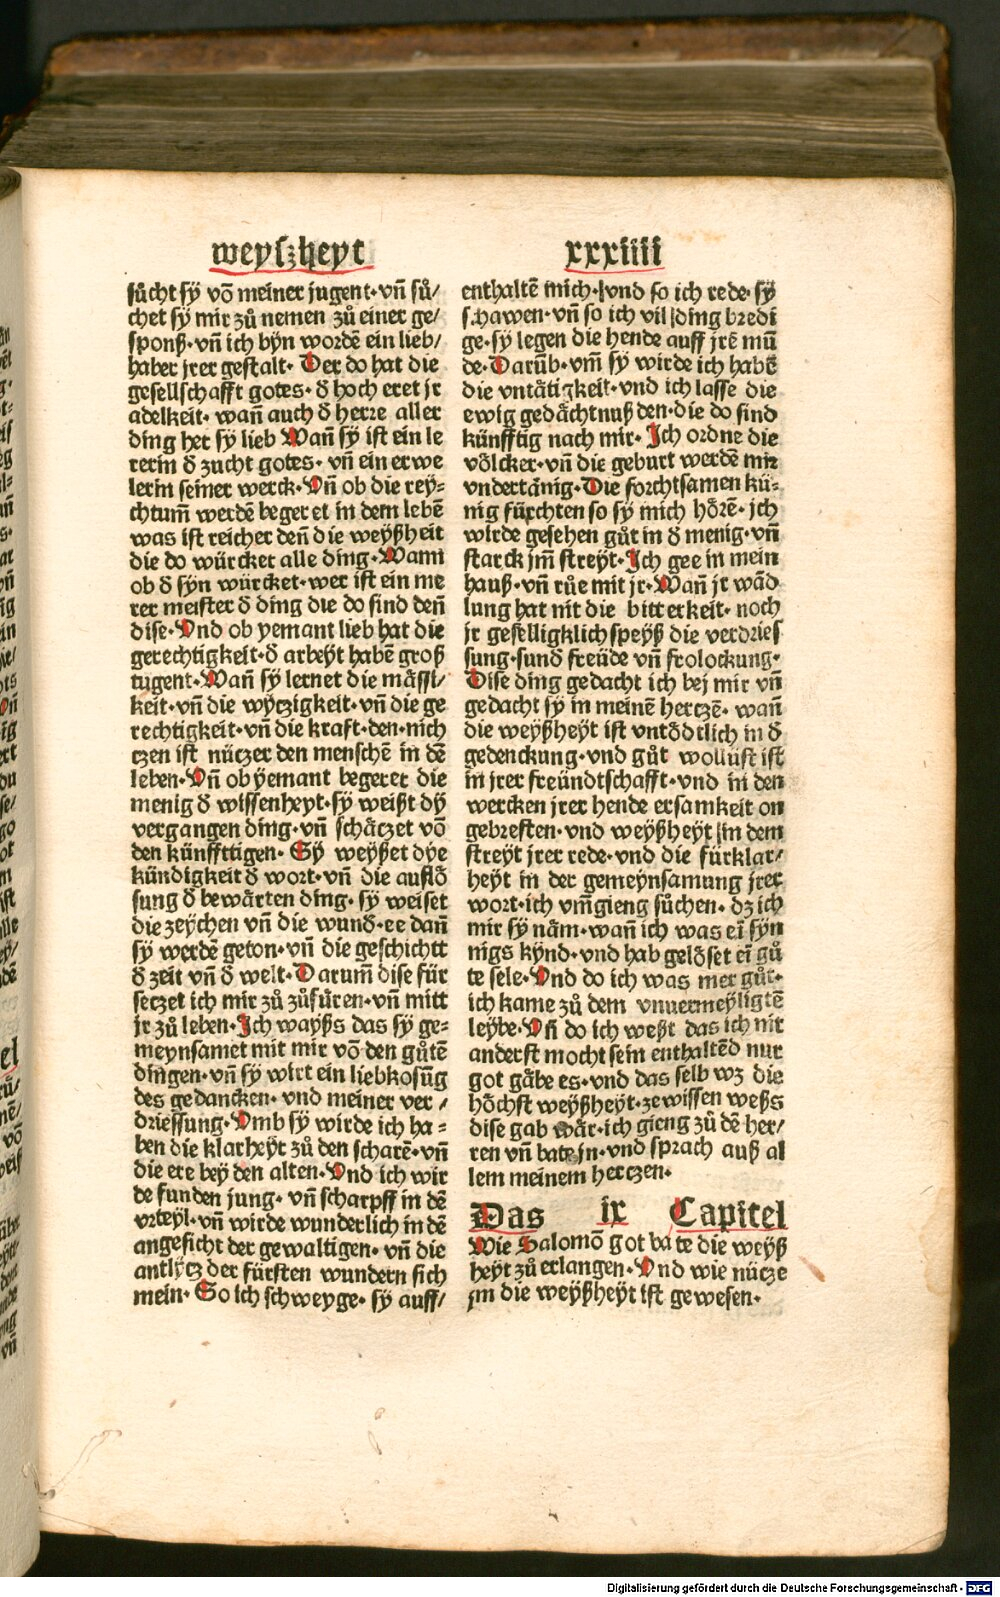 weyſzheyt
xxxiiii
ſůcht ſÿ võ meiner jugent·vñ ſů/
chet ſÿ mir zů nemen zů einer ge/
ſponß·vñ ich bÿn wordẽ ein lieb/
haber jrer geſtalt· Der do hat die
geſellſchafft gotes· đ hoch eret jr
adelkeit· wañ auch đ herre aller
ding het ſÿ lieb Wañ ſÿ iſt ein le
rerin đ zucht gotes· vñ ein erwe
lerin ſeiner werck·Vñ ob die rey⸗
chtum̃ werdẽ begeret in dem lebẽ
was iſt reicher deñ die weÿßheit
die do würcket alle ding·Wann
ob đ ſÿn würcket·wer iſt ein me
rer meiſter đ ding die do ſind deñ
diſe·Vnd ob yemant lieb hat die
gerechtigkeit·đ arbeÿt habẽ groß
tugent·Wañ ſÿ lernet die mäſſi/
keit·vñ die wÿtzigkeit·vñ die ge
rechtigkeit·vñ die kraft·den·nich
tzen iſt nützer den menſchẽ in dẽ
leben·Vñ ob ÿemant begeret die
menig đ wiſſenheyt·ſÿ weißt dÿ
vergangen ding·vñ ſchätzet võ
den künfftigen· Sÿ weÿßet dÿe
kündigkeit đ wort·vñ die auflõ
ſung đ bewärten ding· ſÿ weiſet
die zeÿchen vñ die wunđ·ee dañ
ſÿ werdẽ geton·vñ die geſchichtt
đ zeit vñ đ welt·Darum̃ diſe für
ſetzet ich mir zů zůfüren·vñ mitt
jr zů leben·Ich wayßs das ſÿ ge⸗
meynſamet mit mir võ den gůtẽ
dingen·vñ ſÿ wirt ein liebkoſũg
des gedancken· vnd meiner ver/
drieſſung·Vmb ſÿ wirde ich ha⸗
ben die klarheÿt zů den ſcharẽ·vñ
die ere beÿ den alten·Vnd ich wir
de funden jung· vñ ſcharpff in dẽ
vrteÿl·vñ wirde wunderlich in dẽ
angeſicht der gewaltigen· vñ die
antlÿtz der fürſten wundern ſich
mein· So ich ſchweyge· ſÿ auff/
enthaltẽ mich·vnd ſo ich rede· ſÿ
ſchawen·vñ ſo ich vil ding bredi
ge·ſÿ legen die hende auff jrẽ mũ
de·Darũb·vm̃ ſÿ wirde ich habẽ
die vntätigkeit·vnd ich laſſe die
ewig gedächtnuß den·die do ſind
künfftig nach mir· Ich ordne die
völcker·vñ die geburt werdẽ mir
vndertänig·Die forchtſamen kü⸗
nig fürchten ſo ſÿ mich hörẽ· jch
wirde geſehen gůt in đ menig·vñ
ſtarck jm̃ ſtreÿt·Ich gee in mein
hauß·vñ růe mit jr·Wañ jr wãd
lung hat nit die bitterkeit· noch
jr geſelligklich ſpeÿß die verdrieſ
ſung·ſunđ freüde vñ frolockung·
Diſe ding gedacht ich bej mir vñ
gedacht ſÿ in meinẽ hertzẽ· wañ
die weÿßheÿt iſt vntödtlich in đ
gedenckung·vnd gůt wolluſt iſt
in jrer freündtſchafft·vnd in den
wercken jrer hende erſamkeit on
gebreſten·vnd weÿßheÿt in dem
ſtreÿt jrer rede·vnd die fürklar/
heÿt in der gemeynſamung jrer
wort·ich vm̃gieng ſůchen· dz ich
mir ſÿ näm·wañ ich was eĩ ſÿn
nigs kÿnd·vnd hab gelöſet eĩ gů
te ſele·Vnd do ich was mer gůt·
ich kame zů dem vnuermeÿligtẽ
leÿbe·Vñ do ich weßt das ich nit
anderſt mocht ſein enthaltẽd nur
got gäbe es·vnd das ſelb wz die
höchſt weÿßheÿt·ze wiſſen weßs
diſe gab wär·ich gieng zů dẽ her/
ren vñ bate jn·vnd ſprach auß al
lem meinem hertzen·
Das ix Capitel
Wie Salomõ got bate die weÿß
heÿt zů erlangen·Vnd wie nütze
jm die weÿßheÿt iſt geweſen·
Digitalisierung gefördert durch die Deutsche Forschungsgemeinschaft - DFG